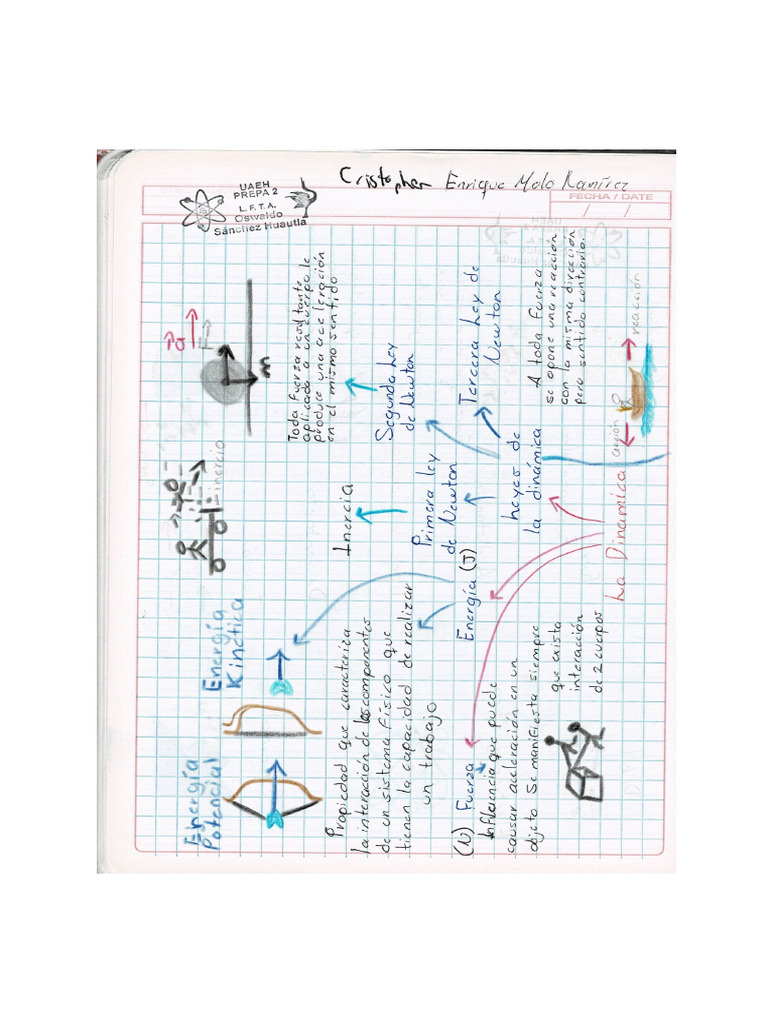 Cristopher Enrique Melo Ramírez
UAEH
PREPA 2
L.F.T.A.
Oswaldo
Sánchez Huautla
FECHA / DATE
/ /
La Dinamica
Fuerza
(N)
Influencia que puede
causar aceleración en un
objeto Se manifiesta siempre
que exista
interacción
de 2 cuerpos
Energía (J)
Propiedad que caracteriza
la interación de los componentes
de un sistema físico que
tienen la capacidad de realizar
un trabajo
Energía
Potencial
Energía
Kinética
Leyes de
la dinámica
Primera ley
de Newton
Inercia
inercia
Segunda Ley
de Newton
Toda fuerza resultante
aplicada a un cuerpo le
produce una aceleración
en el mismo sentido
a
F
m
Tercera Ley de
Newton
A toda fuerza
se opone una reacción
con la misma dirección
pero sentido contrario.
acción
reacción